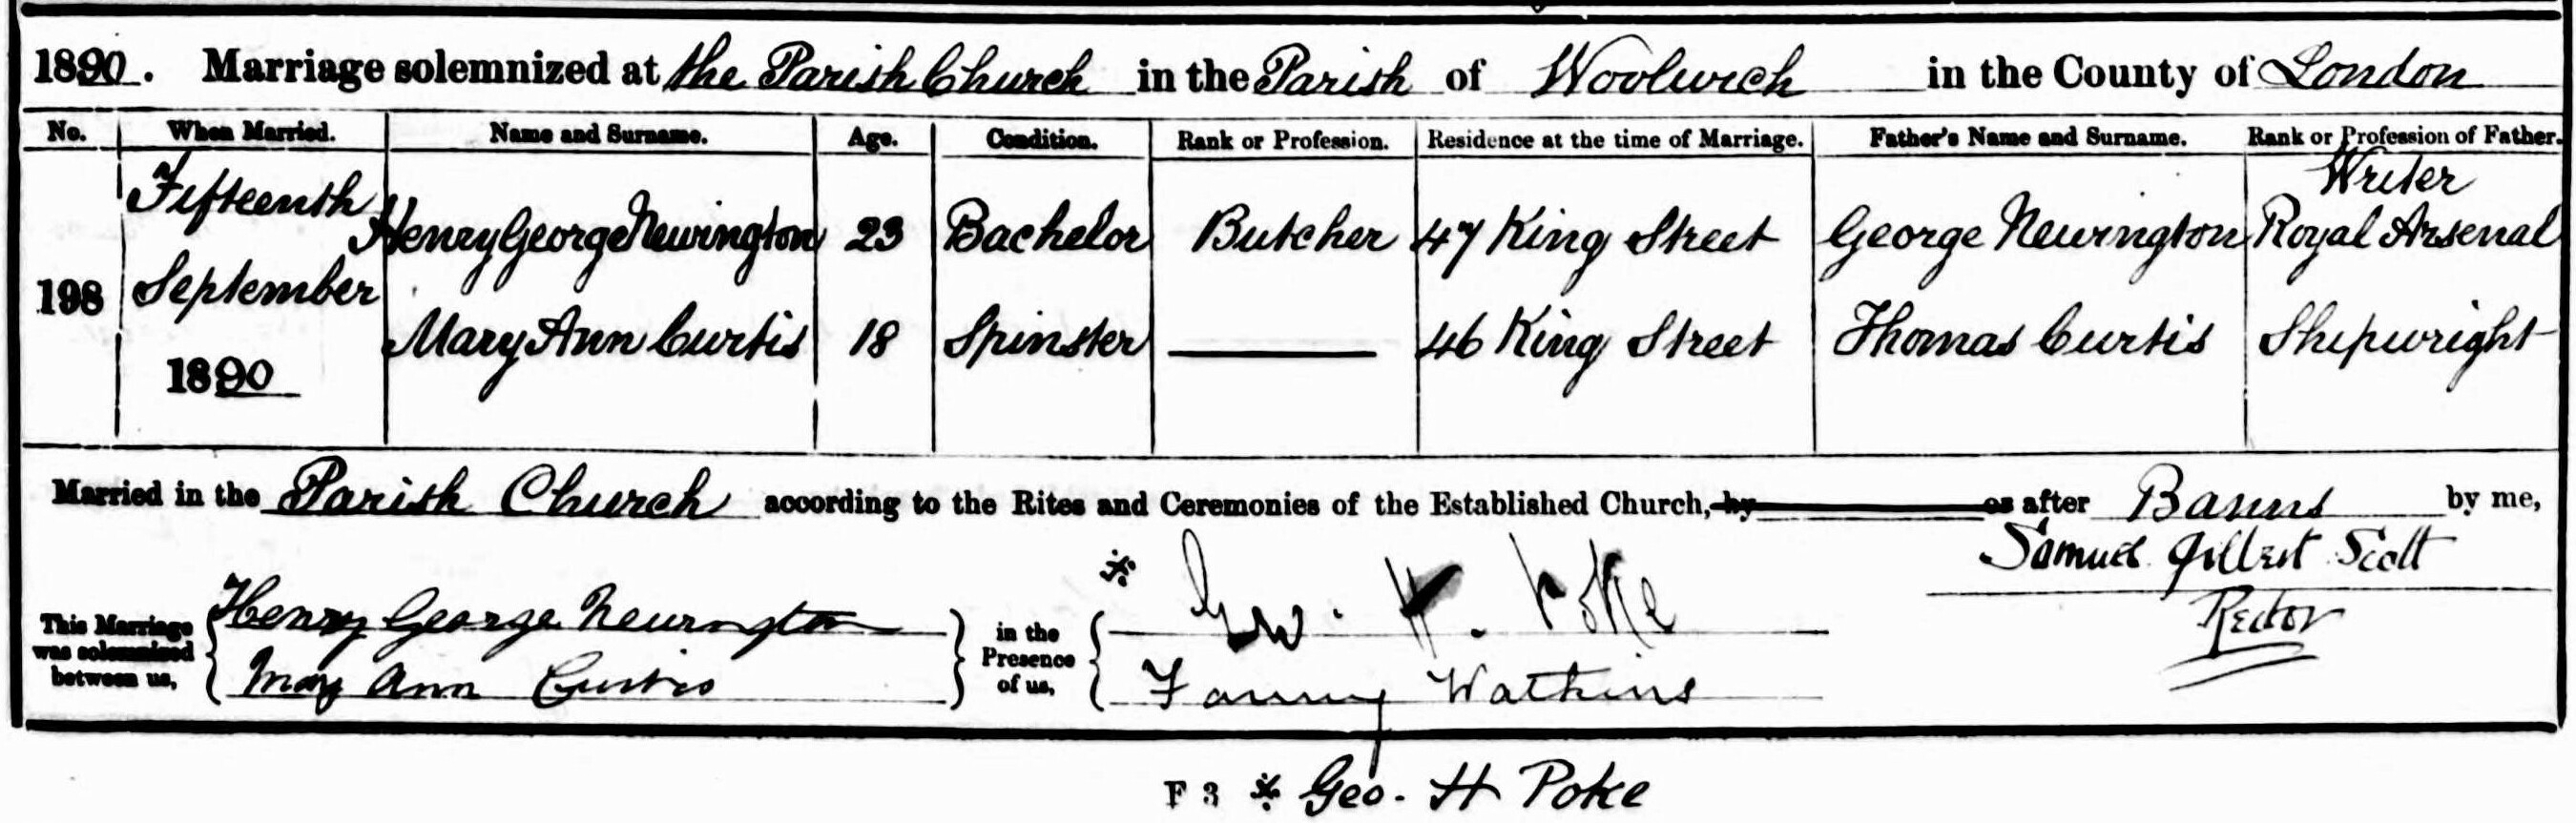 1890. Marriage solemnized at the Parish Church in the Parish of Woolwich in the County of London
No. When Married. Name and Surname. Age. Condition. Rank or Profession. Residence at the time of Marriage. Father's Name and Surname. Rank or Profession of Father.
198 Fifteenth September 1890
Henry George Newington 23 Bachelor Butcher 47 King Street George Newington Writer Royal Arsenal
Mary Ann Curtis 18 Spinster 46 King Street Thomas Curtis Shipwright
Married in the Parish Church according to the Rites and Ceremonies of the Established Church, by or after Banns by me,
Samuel Gilbert Scott
Rector
This Marriage was solemnized between us, Henry George Newington
Mary Ann Curtis
in the Presence of us, * Geo. H. Poke
Fanny Watkins
F 3 * Geo. H Poke